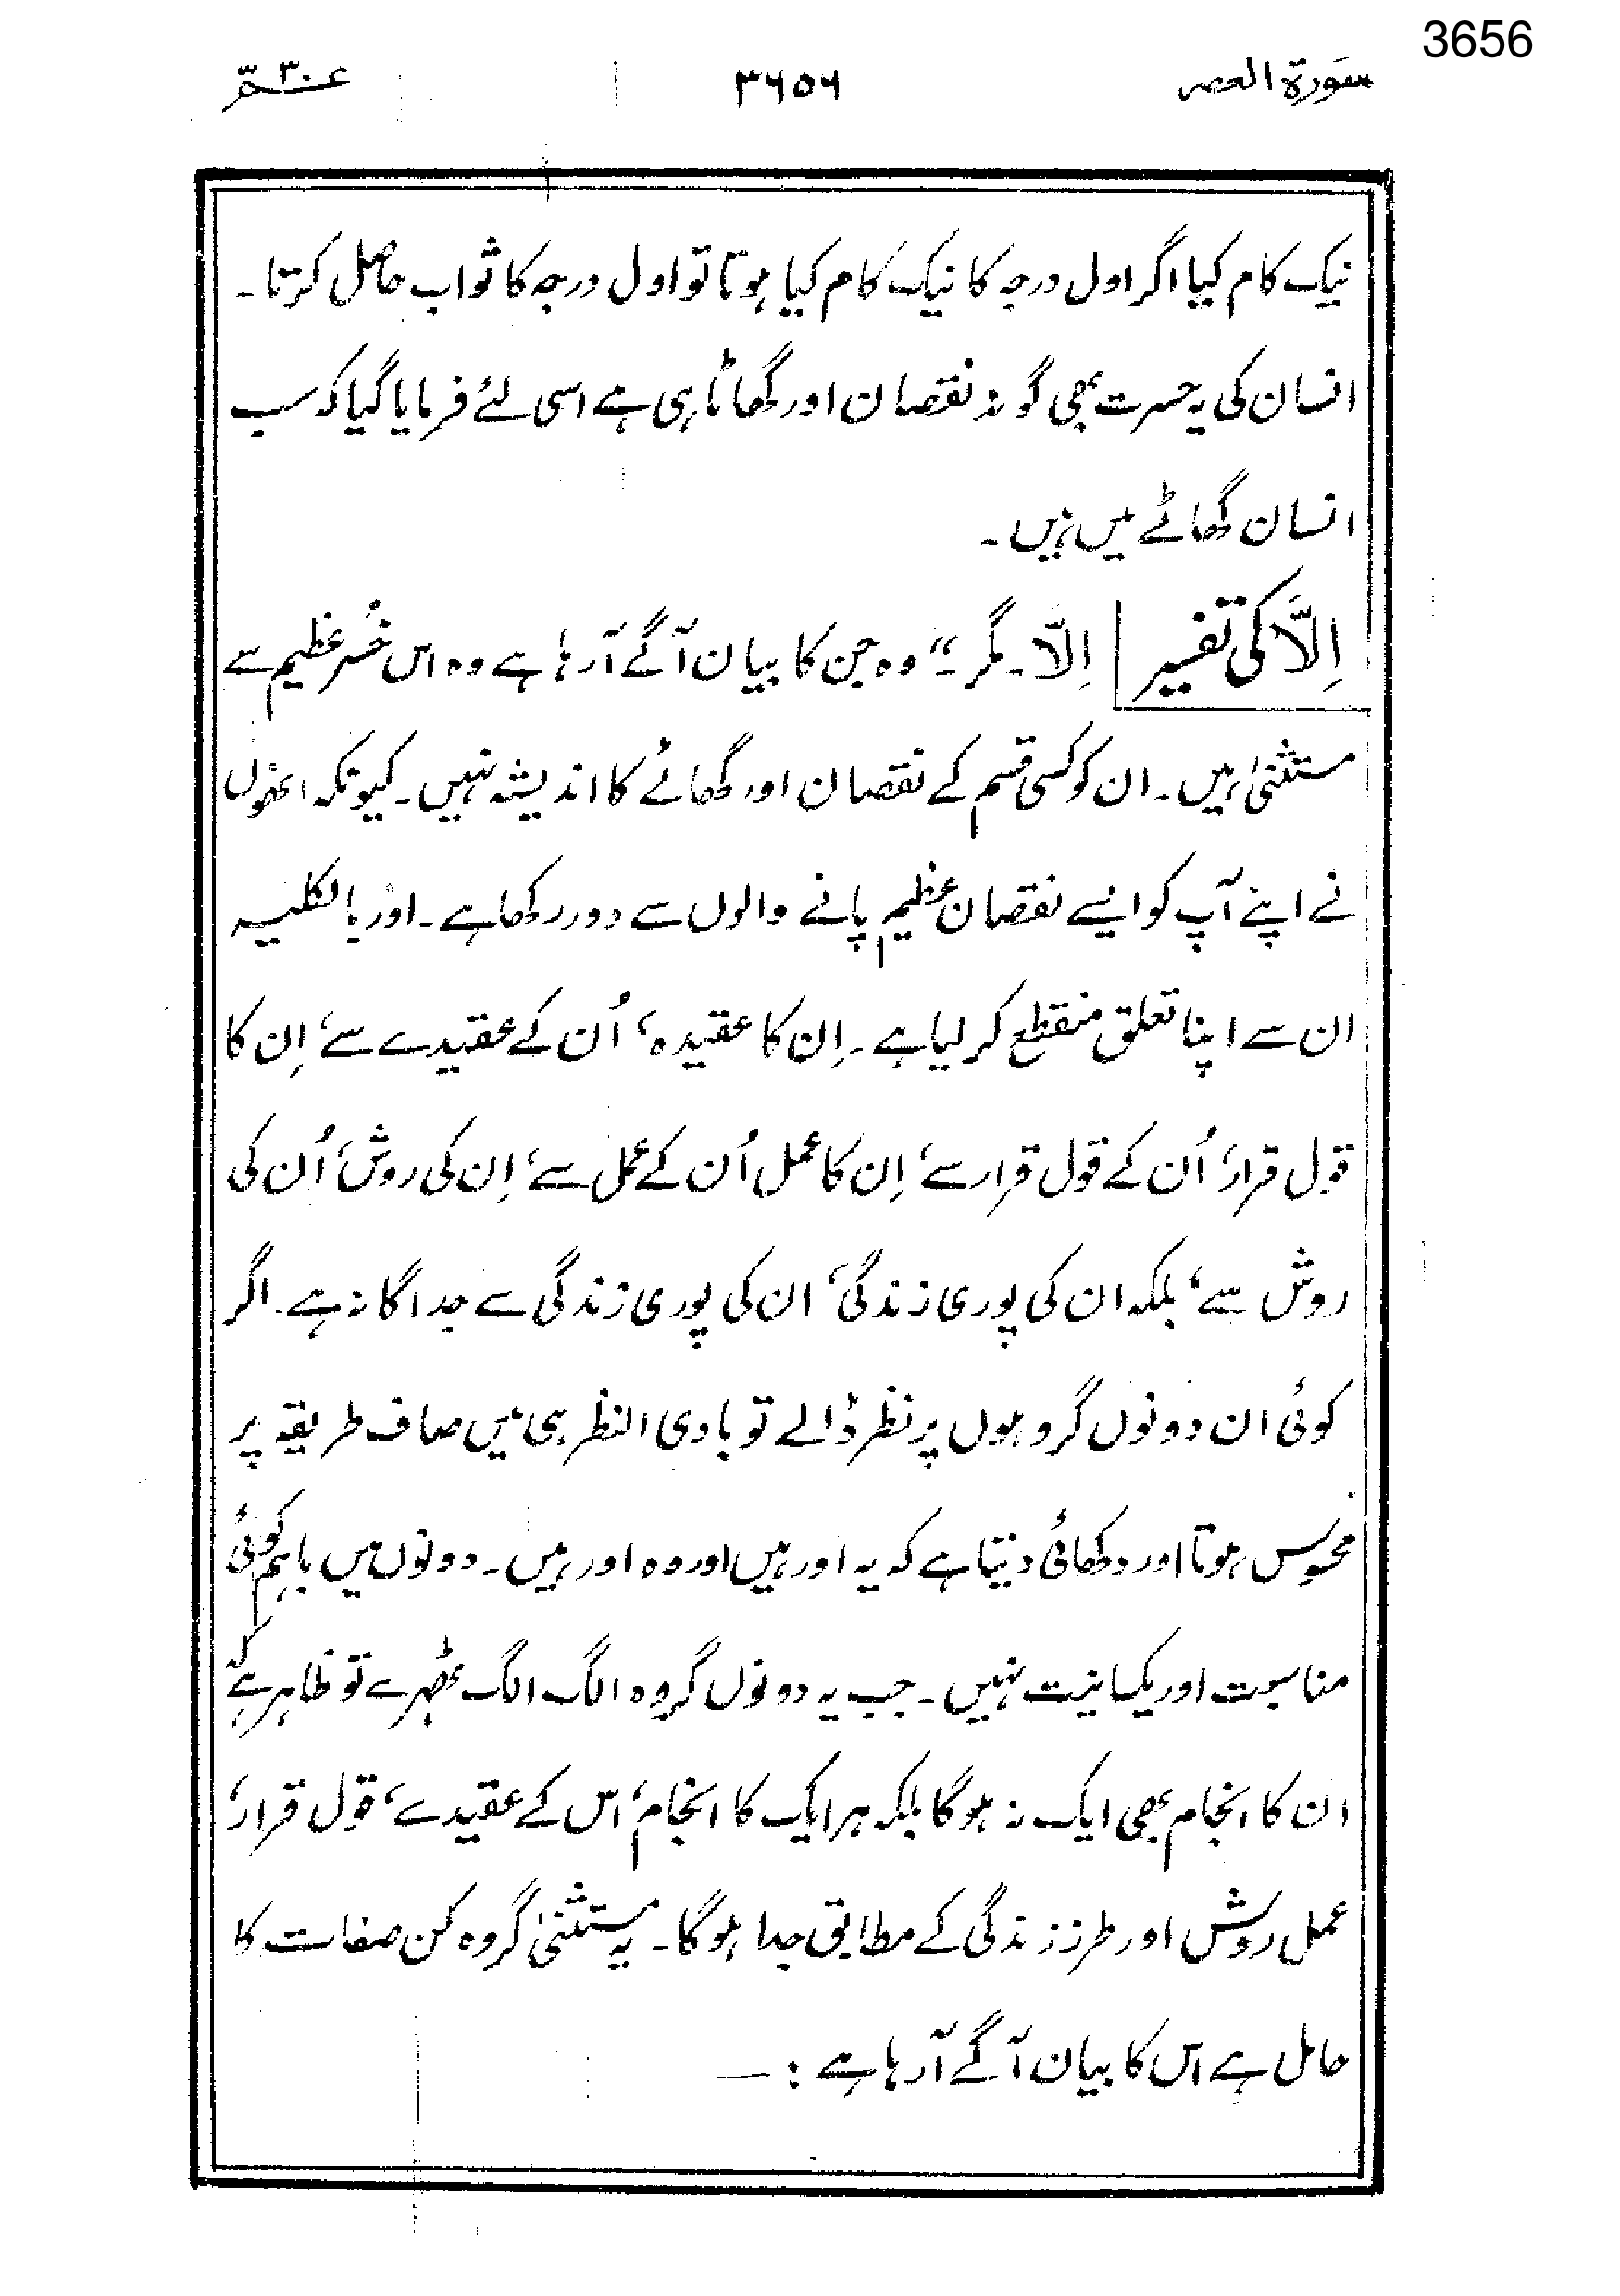 3656
سورۃ العصر ۳۶۵۶ عم ۳۰
نیک کام کیا اگر اول درجہ کا نیک کام کیا ہوتا تو اول درجہ کا ثواب حاصل کرتا۔
انسان کی یہ حسرت بھی گونہ نقصان اور گھاٹا ہی ہے اسی لئے فرمایا گیا کہ سب
انسان گھاٹے میں ہیں۔
اِلَّا کی تفسیر اِلَّا۔ مگر۔“ وہ جن کا بیان آگے آرہا ہے وہ اس خُسرِ عظیم سے
مستثنیٰ ہیں۔ ان کو کسی قسم کے نقصان اور گھاٹے کا اندیشہ نہیں۔ کیونکہ انھوں
نے اپنے آپ کو ایسے نقصان عظیم پانے والوں سے دور رکھا ہے۔ اور بالکلیہ
ان سے اپنا تعلق منقطع کر لیا ہے۔ اِن کا عقیدہ، اُن کے عقیدے سے، اِن کا
قول قرار، اُن کے قول قرار سے، اِن کا عمل اُن کے عمل سے، اِن کی روش، اُن کی
روش سے، بلکہ ان کی پوری زندگی، ان کی پوری زندگی سے جداگانہ ہے۔ اگر
کوئی ان دونوں گروہوں پر نظر ڈالے تو بادی النظر ہی میں صاف طریقہ پر
محسوس ہوتا اور دکھائی دیتا ہے کہ یہ اور ہیں اور وہ اور ہیں۔ دونوں میں باہم کوئی
مناسبت اور یکسانیت نہیں۔ جب یہ دونوں گروہ الگ الگ ٹھہرے تو ظاہر ہے کہ
ان کا انجام بھی ایک نہ ہوگا بلکہ ہر ایک کا انجام، اس کے عقیدے، قول قرار،
عمل روش اور طرز زندگی کے مطابق جدا ہوگا۔ یہ مستثنیٰ گروہ کن صفات کا
حامل ہے اس کا بیان آگے آرہا ہے :—